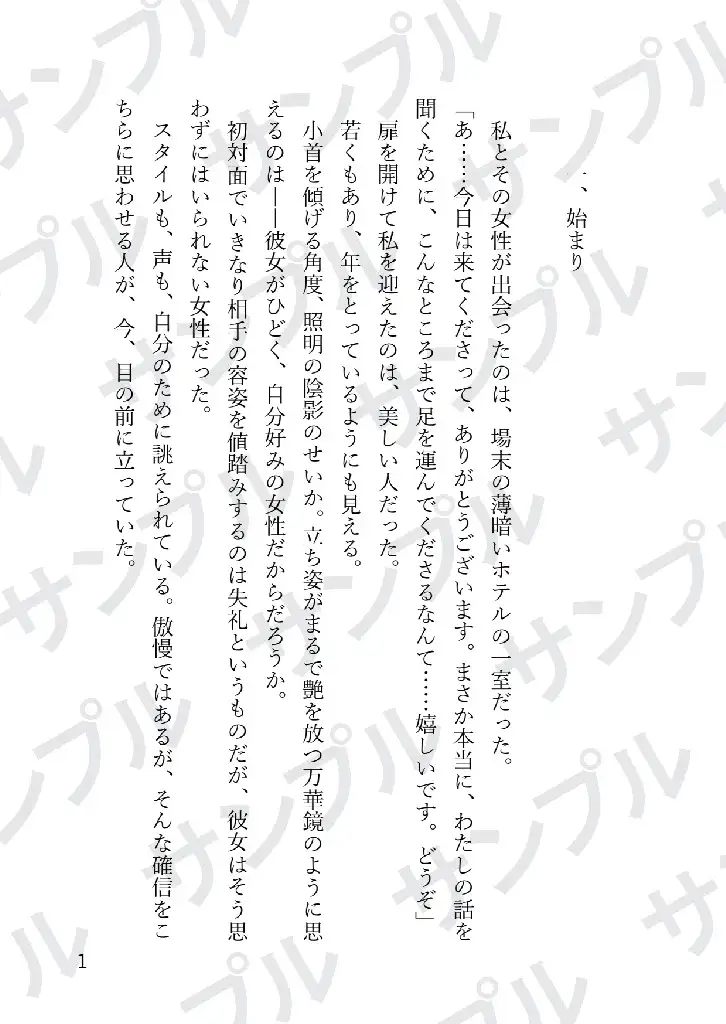 一、始まり
私とその女性が出会ったのは、場末の薄暗いホテルの一室だった。
「あ……今日は来てくださって、ありがとうございます。まさか本当に、わたしの話を
聞くために、こんなところまで足を運んでくださるなんて……嬉しいです。どうぞ」
扉を開けて私を迎えたのは、美しい人だった。
若くもあり、年をとっているようにも見える。
小首を傾げる角度、照明の陰影のせいか。立ち姿がまるで艶を放つ万華鏡のように思
えるのは――彼女がひどく、自分好みの女性だからだろうか。
初対面でいきなり相手の容姿を値踏みするのは失礼というものだが、彼女はそう思
わずにはいられない女性だった。
スタイルも、声も、自分のために誂えられている。傲慢ではあるが、そんな確信をこ
ちらに思わせる人が、今、目の前に立っていた。
1
サンプル
サンプル
サンプル
サンプル
サンプル
サンプル
サンプル
サンプル
サンプル
サンプル
サンプル
サンプル